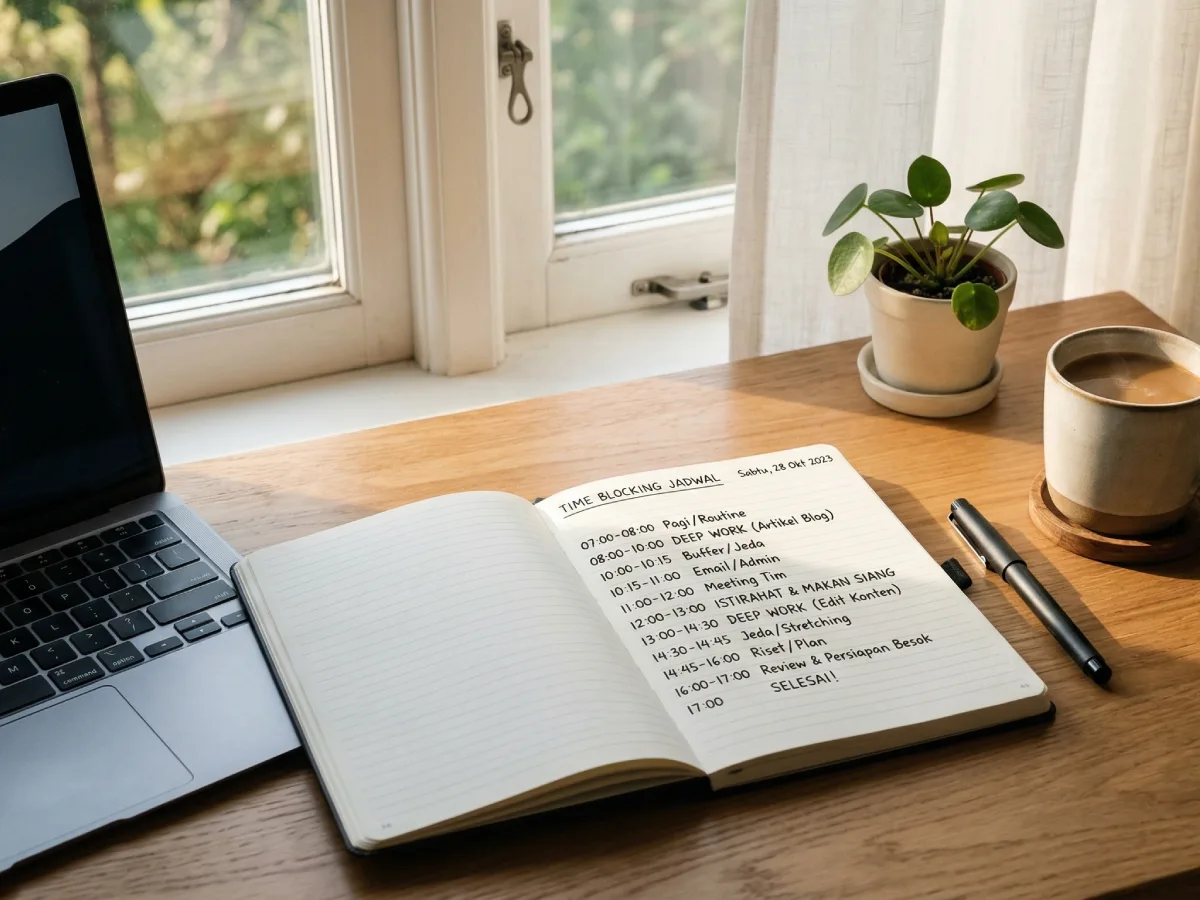 TIME BLOCKING JADWAL Sabtu, 28 Okt 2023
07:00-08:00 Pagi/Routine
08:00-10:00 DEEP WORK (Artikel Blog)
10:00-10:15 Buffer/Jeda
10:15-11:00 Email/Admin
11:00-12:00 Meeting Tim
12:00-13:00 ISTIRAHAT & MAKAN SIANG
13:00-14:30 DEEP WORK (Edit Konten)
14:30-14:45 Jeda/Stretching
14:45-16:00 Riset/Plan
16:00-17:00 Review & Persiapan Besok
17:00 SELESAI!
command
option